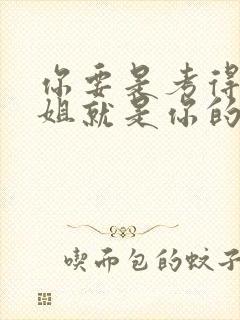 你要是考得
姐就是你的
喫而包的蚊子